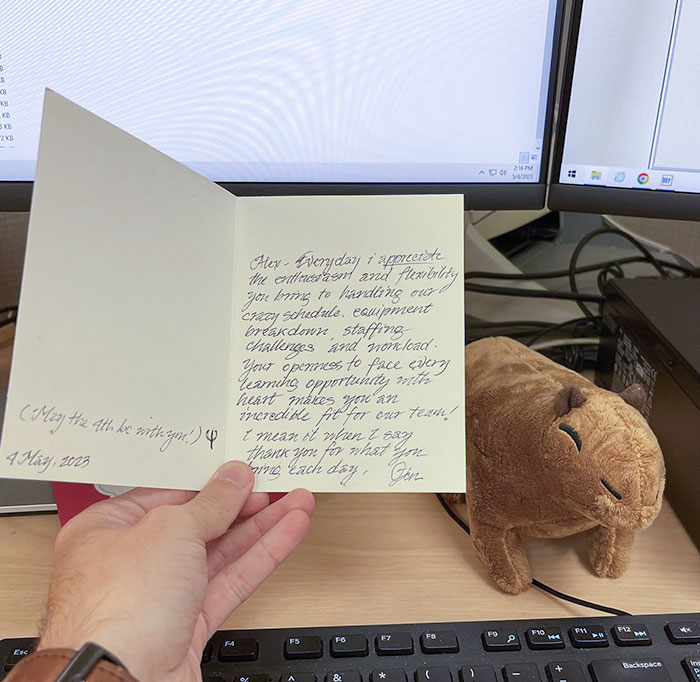 KB
KB
KB
KB
KB
8 KB
2 KB
2:16 PM
5/4/2023
(May the 4th be with you!)
4 May, 2023
Alex - Everyday i appreciate
the enthusiasm and flexibility
you bring to handling our
crazy schedule, equipment
breakdown, staffing
challenges and workload.
Your openness to face every
learning opportunity with
heart makes you an
incredible fit for our team!
I mean it when I say
thank you for what you
bring each day.
Esc
F4
F5
F6
F7
F8
F9
F10
F11
F12
%
^
&
*
(
)
Backspace